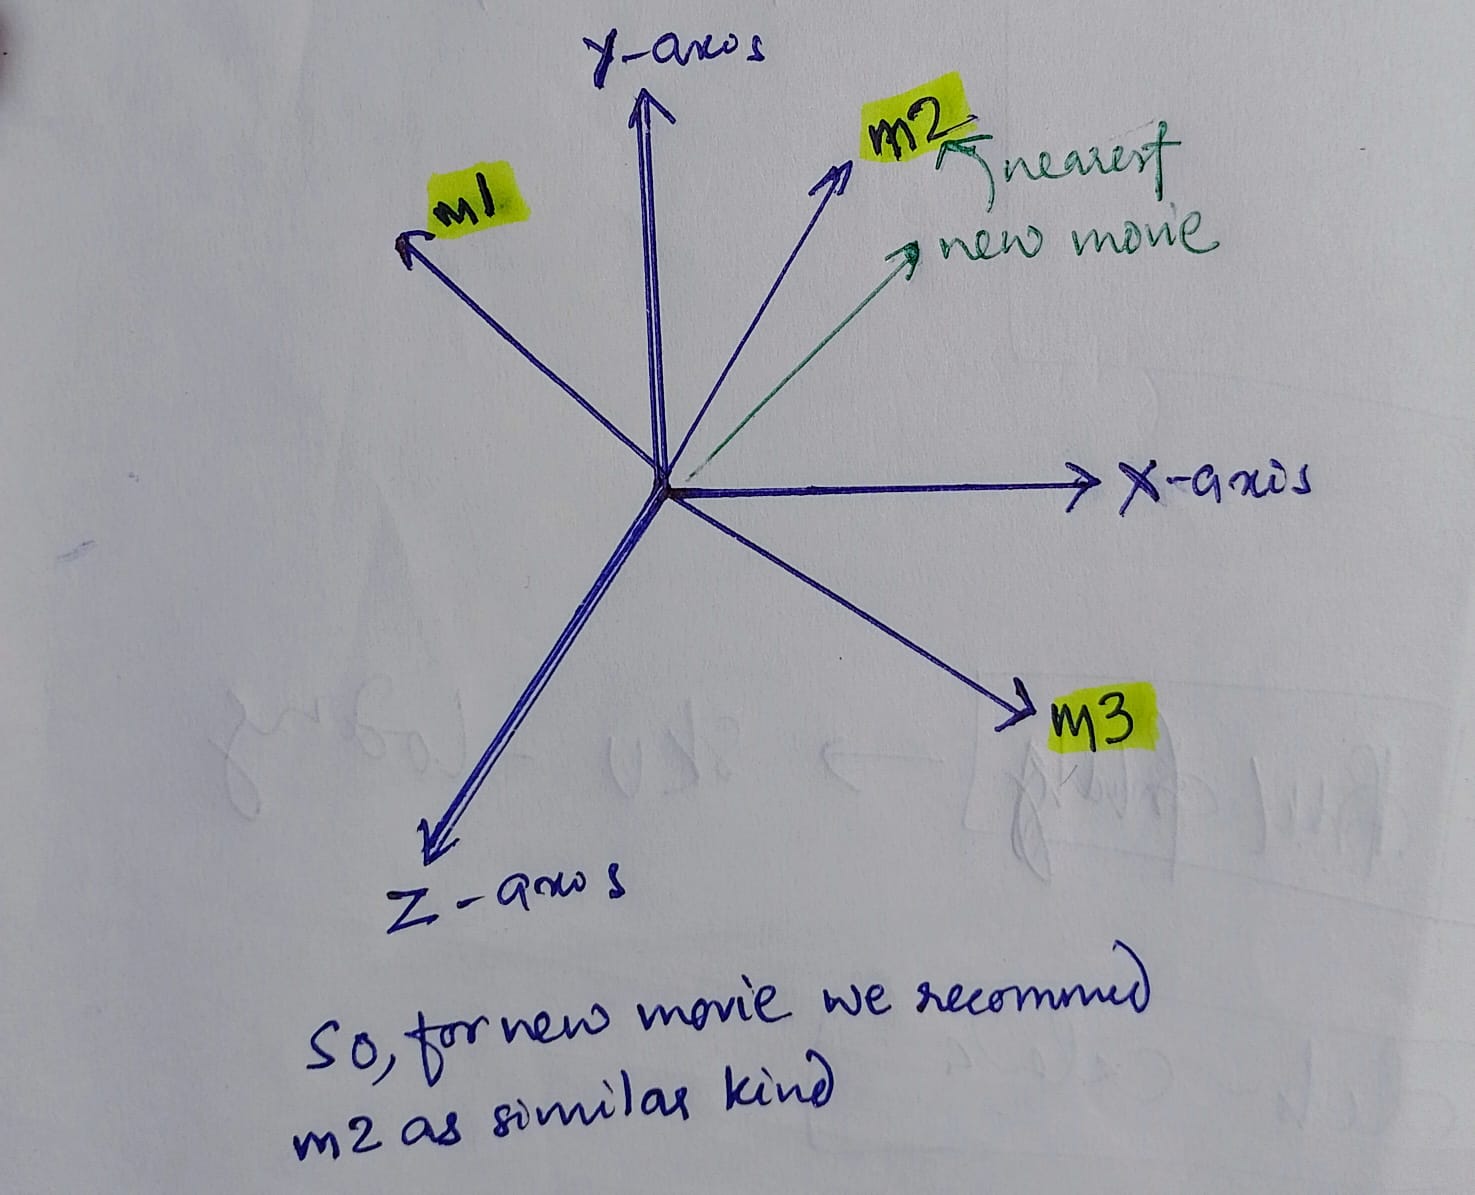 Y-axis
m2
nearest
m1
new movie
X-axis
m3
Z-axis
So, for new movie we recommed
m2 as similar kind